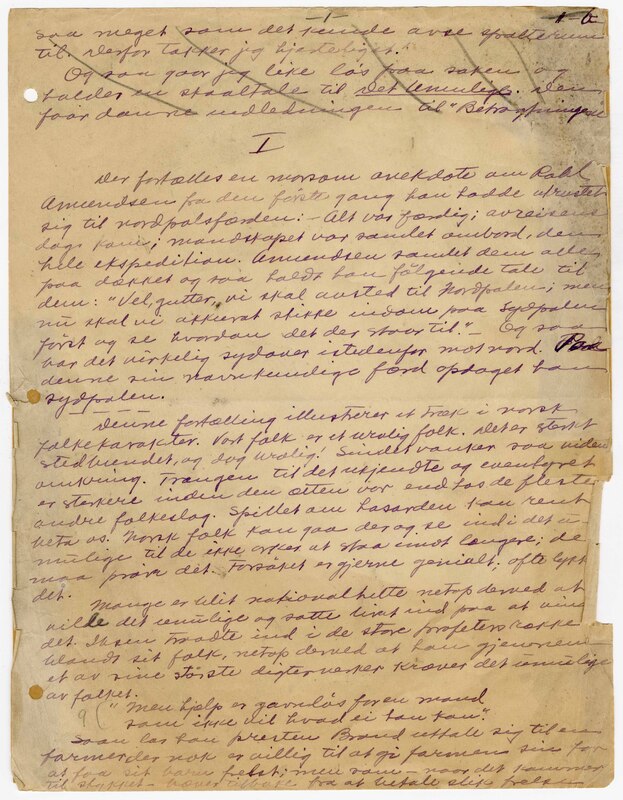 -1-
1-6
saa meget som det kunde avse spalterum
til. Derfor takker jeg hjerteligst."
Og saa gaar jeg like løs paa saken og
holder en skaaltale til Det Umulige. Den
faar danne indledningen til "Betragtningene
I
Der fortælles en morsom anekdote om Roald
Amundsen fra den første gang han hadde utrustet
sig til nordpolsfærden: - Alt var færdig; avreisens
dag kom; mandskapet var samlet ombord, den
hele ekspedition. Amundsen samlet dem alle
paa dækket og saa holdt han følgende tale til
dem: "Vel, gutter, vi skal avsted til Nordpolen; men
nu skal vi akkurat stikke indom paa Sydpolen
først og se hvordan det der staar til." - Og saa
bar det virkelig sydover istedenfor mot nord. Paa
denne sin navnkundige færd opdaget han
Sydpolen.
Denne fortælling illustrerer et træk i norsk
folkekarakter. Vort folk er et urolig folk. Det er sterkt
stedbundet, og dog urolig! Sindet vanker saa viden
omkring. Trangen til det ukjendte og eventyret
er sterkere inden den ætten vor end hos de fleste
andre folkeslag. Spillet om hasarden kan rent
beta os. Norsk folk kan gaa der og se ind i det u-
mulige til de ikke orker at staa imot længere; de
maa prøve det. Forsøket er gjerne genialt; ofte lykk
det.
Mange er blit nationalhelte netop derved at
ville det umulige og satte livet ind paa at vin
det. Ibsen traadte ind i de store profeters række
blandt sit folk, netop derved at han gjennem
et av sine første digterverker kræver det umulige
av folket.
"Men hjelp er gavnløs for en mand
som ikke vil hvad ei han kan".
Saan lar han presten Brand uttale sig til en
farmer der nok er villig til at gi farmen sin for
at faa sit barn frelst; men som - naar det kommer
til stykket - fra at betale slik frelse